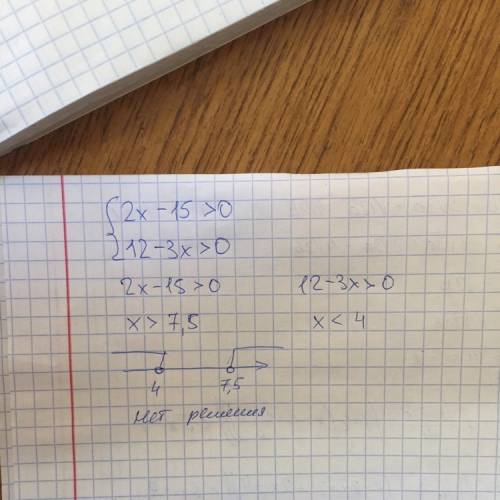 {2x - 15 > 0
{12 - 3x > 0
2x - 15 > 0 12 - 3x > 0
x > 7,5 x < 4
4 7,5
Нет решения